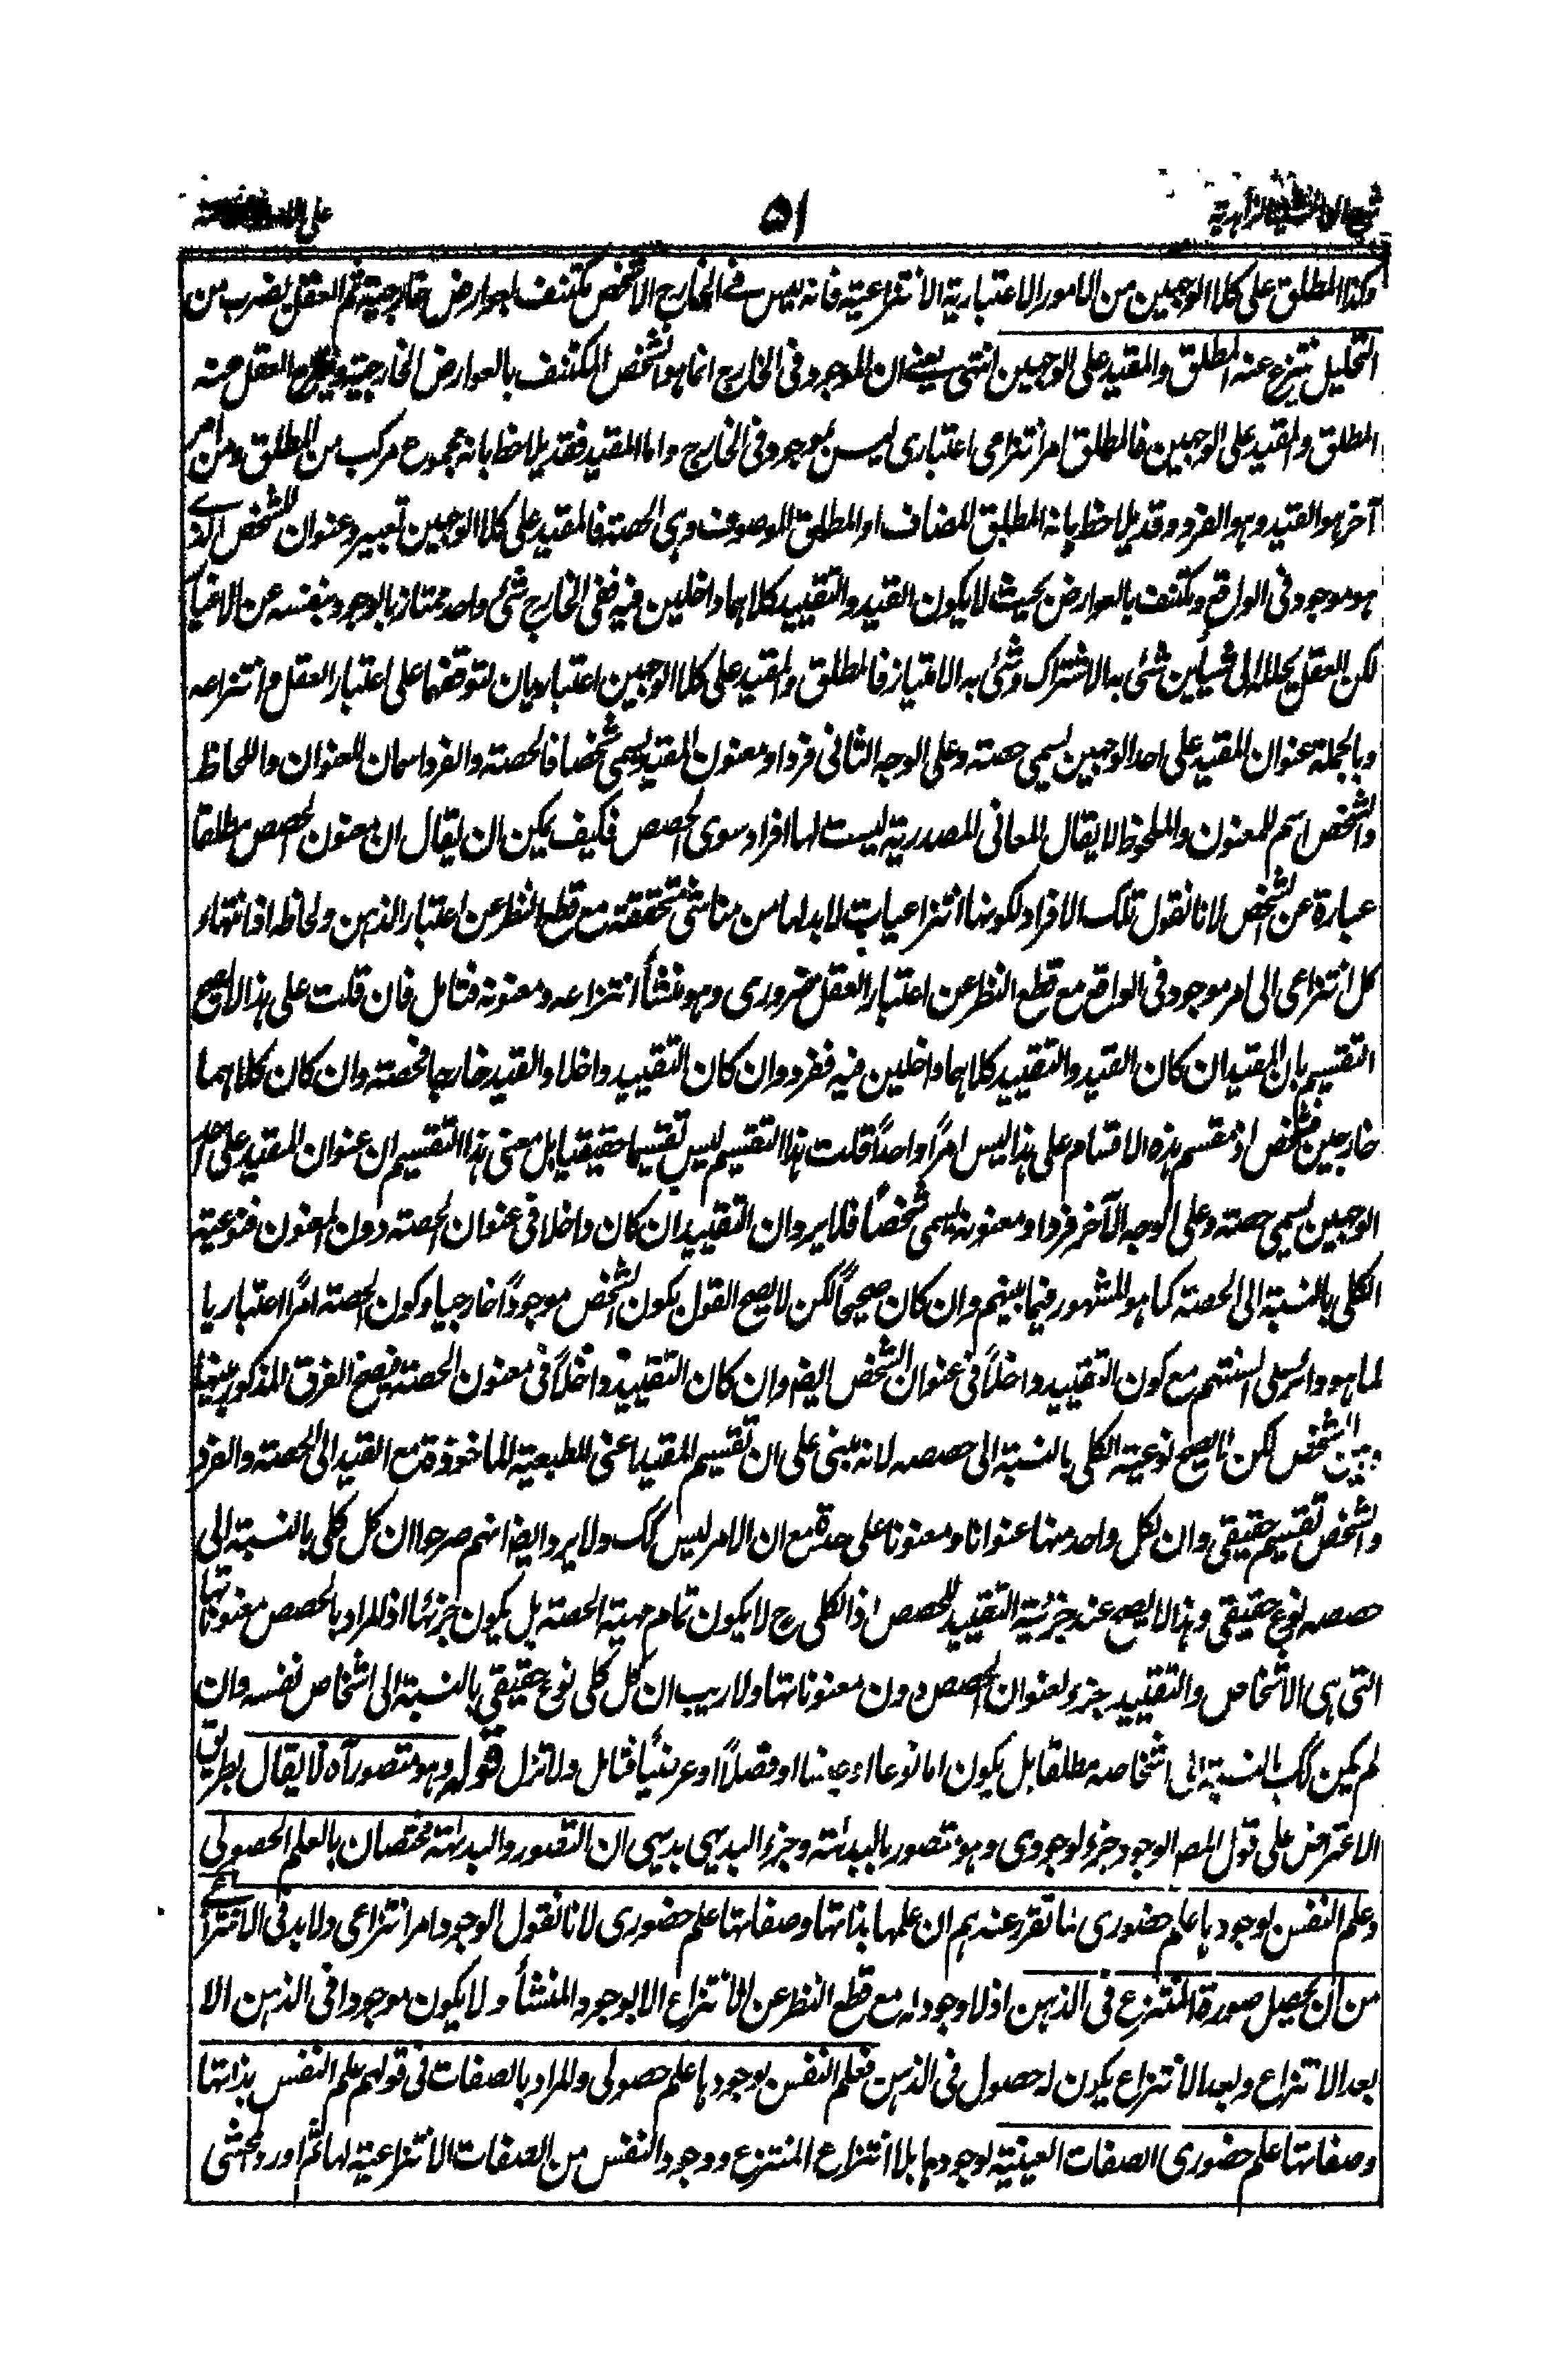 ۵۱
وكذا المطلق على كلا الوجهين من الامور الاعتبارية الانتزاعية فانه ليس فى الخارج الا شخص مكتنف بعوارض خارجية ثم العقل بضرب من
التحليل ينتزع عنه المطلق والمقيد على الوجهين انتهى يعنى ان الموجود فى الخارج انما هو الشخص المكتنف بالعوارض الخارجية العقل منه
المطلق والمقيد على الوجهين فالمطلق امر انتزاعى اعتبارى ليس بموجود فى الخارج واما المقيد فقد يلاحظ بانه مجموع مركب من المطلق ومن امر
آخر هو القيد وهو الفرد وقد يلاحظ بانه المطلق المضاف او المطلق الموصوف وهى الحصة فالمقيد على كلا الوجهين تعبير وعنوان للشخص الذى
هو موجود فى الواقع ومكتنف بالعوارض بحيث لا يكون القيد والتقييد كلاهما داخلين فيه ففى الخارج شئ واحد ممتاز بالوجود بنفسه عن الاغيار
لكن العقل يحلله الى شيأين شئ به الاشتراك وشئ به الامتياز فالمطلق والمقيد على كلا الوجهين اعتباريان لتوقفهما على اعتبار العقل وانتزاعه
وبالجملة عنوان المقيد على احد الوجهين يسمى حصته وعلى الوجه الثانى فردا ومعنون المقيد يسمى شخصا فالحصته والفرد اسمان للعنوان واللحاظ
والشخص اسم للمعنون والملحوظ لا يقال المعانى المصدرية ليست لها افراد سوى الحصص فكيف يمكن ان يقال ان معنون الحصص مطلقا
عبارة عن الشخص لانا نقول تلك الافراد لكونها انتزاعيات لا بد لها من مناشى متحققة مع قطع النظر عن اعتبار الذهن ولحاظه اذ انتهاء
كل انتزاعى الى امر موجود فى الواقع مع قطع النظر عن اعتبار العقل ضرورى وهو منشأ انتزاعه ومعنونه فتامل فان قلت على هذا لا يصح
التقسيم بان المقيد ان كان القيد والتقييد كلاهما داخلين فيه ففرد وان كان التقييد داخلا والقيد خارجا فحصته وان كان كلاهما
خارجين فشخص اذ مقسم هذه الاقسام على هذا ليس امرًا واحدًا قلت هذا التقسيم ليس تقسيما حقيقيا بل معنى هذا التقسيم ان عنوان المقيد على احد
الوجهين يسمى حصته وعلى الوجه الآخر فردا ومعنونه يسمى شخصًا فلا يرد ان التقييد ان كان داخلا فى عنوان الحصته دون المعنون فنوعية
الكلى بالنسبة الى الحصته كما هو المشهور فيما بينهم وان كان صحيحًا لكن لا يصح القول بكون الشخص موجودًا خارجيا وكون الحصته امرًا اعتباريا
لما هو دائر على السنتهم مع كون التقييد داخلًا فى عنوان الشخص ايضه وان كان التقييد داخلًا فى معنون الحصته فيصح الفرق المذكور بينها
وبين الشخص لكن لا يصح نوعية الكلى بالنسبة الى حصصه لانه مبنى على ان تقسيم المقيد اعنى الطبيعية الماخوذة مع القيد الى الحصته والفرد
والشخص تقسيم حقيقى وان لكل واحد منها عنوانا ومعنونا على حدة مع ان الامر ليس كك ولا يرد ايضه انهم صرحوا ان كل كلى بالنسبة الى
حصصه نوع حقيقى وهذا لا يصح عند جزئية التقييد للحصص اذ الكلى ح لا يكون تمام مهية الحصته بل يكون جزئها اذ المراد بالحصص معنوناتها
التى هى الاشخاص والتقييد جزء لعنوان الحصص دون معنوناتها ولا ريب ان كل كلى نوع حقيقى بالنسبة الى اشخاص نفسه وان
لم يكن كك بالنسبة الى اشخاصه مطلقا بل يكون اما نوعا او جنسا او فصلًا او عرضيًا فتامل ولا تزل قوله وهو متصور آه لا يقال بطريق
الاعتراض على قول المصم الوجود جزء لوجودى وهو متصور بالبداهته وجزء البديهى بديهى ان التصور والبداهته مختصان بالعلم الحصولى
وعلم النفس بوجودها علم حضورى لما تقرر عندهم ان علمها بذاتها وصفاتها علم حضورى لانا نقول الوجود امر انتزاعى ولا بد فى الانتزاعى
من ان يحصل صورة المنتزع فى الذهن اذ لا وجود له مع قطع النظر عن الانتزاع الا بوجود المنشأ ولا يكون موجودا فى الذهن الا
بعد الانتزاع وبعد الانتزاع يكون له حصول فى الذهن فعلم النفس بوجودها علم حصولى والمراد بالصفات فى قولهم علم النفس بذاتها
وصفاتها علم حضورى الصفات العينية لوجودها بلا انتزاع المنتزع ووجود النفس من الصفات الانتزاعية لها ثم اورد المحشى